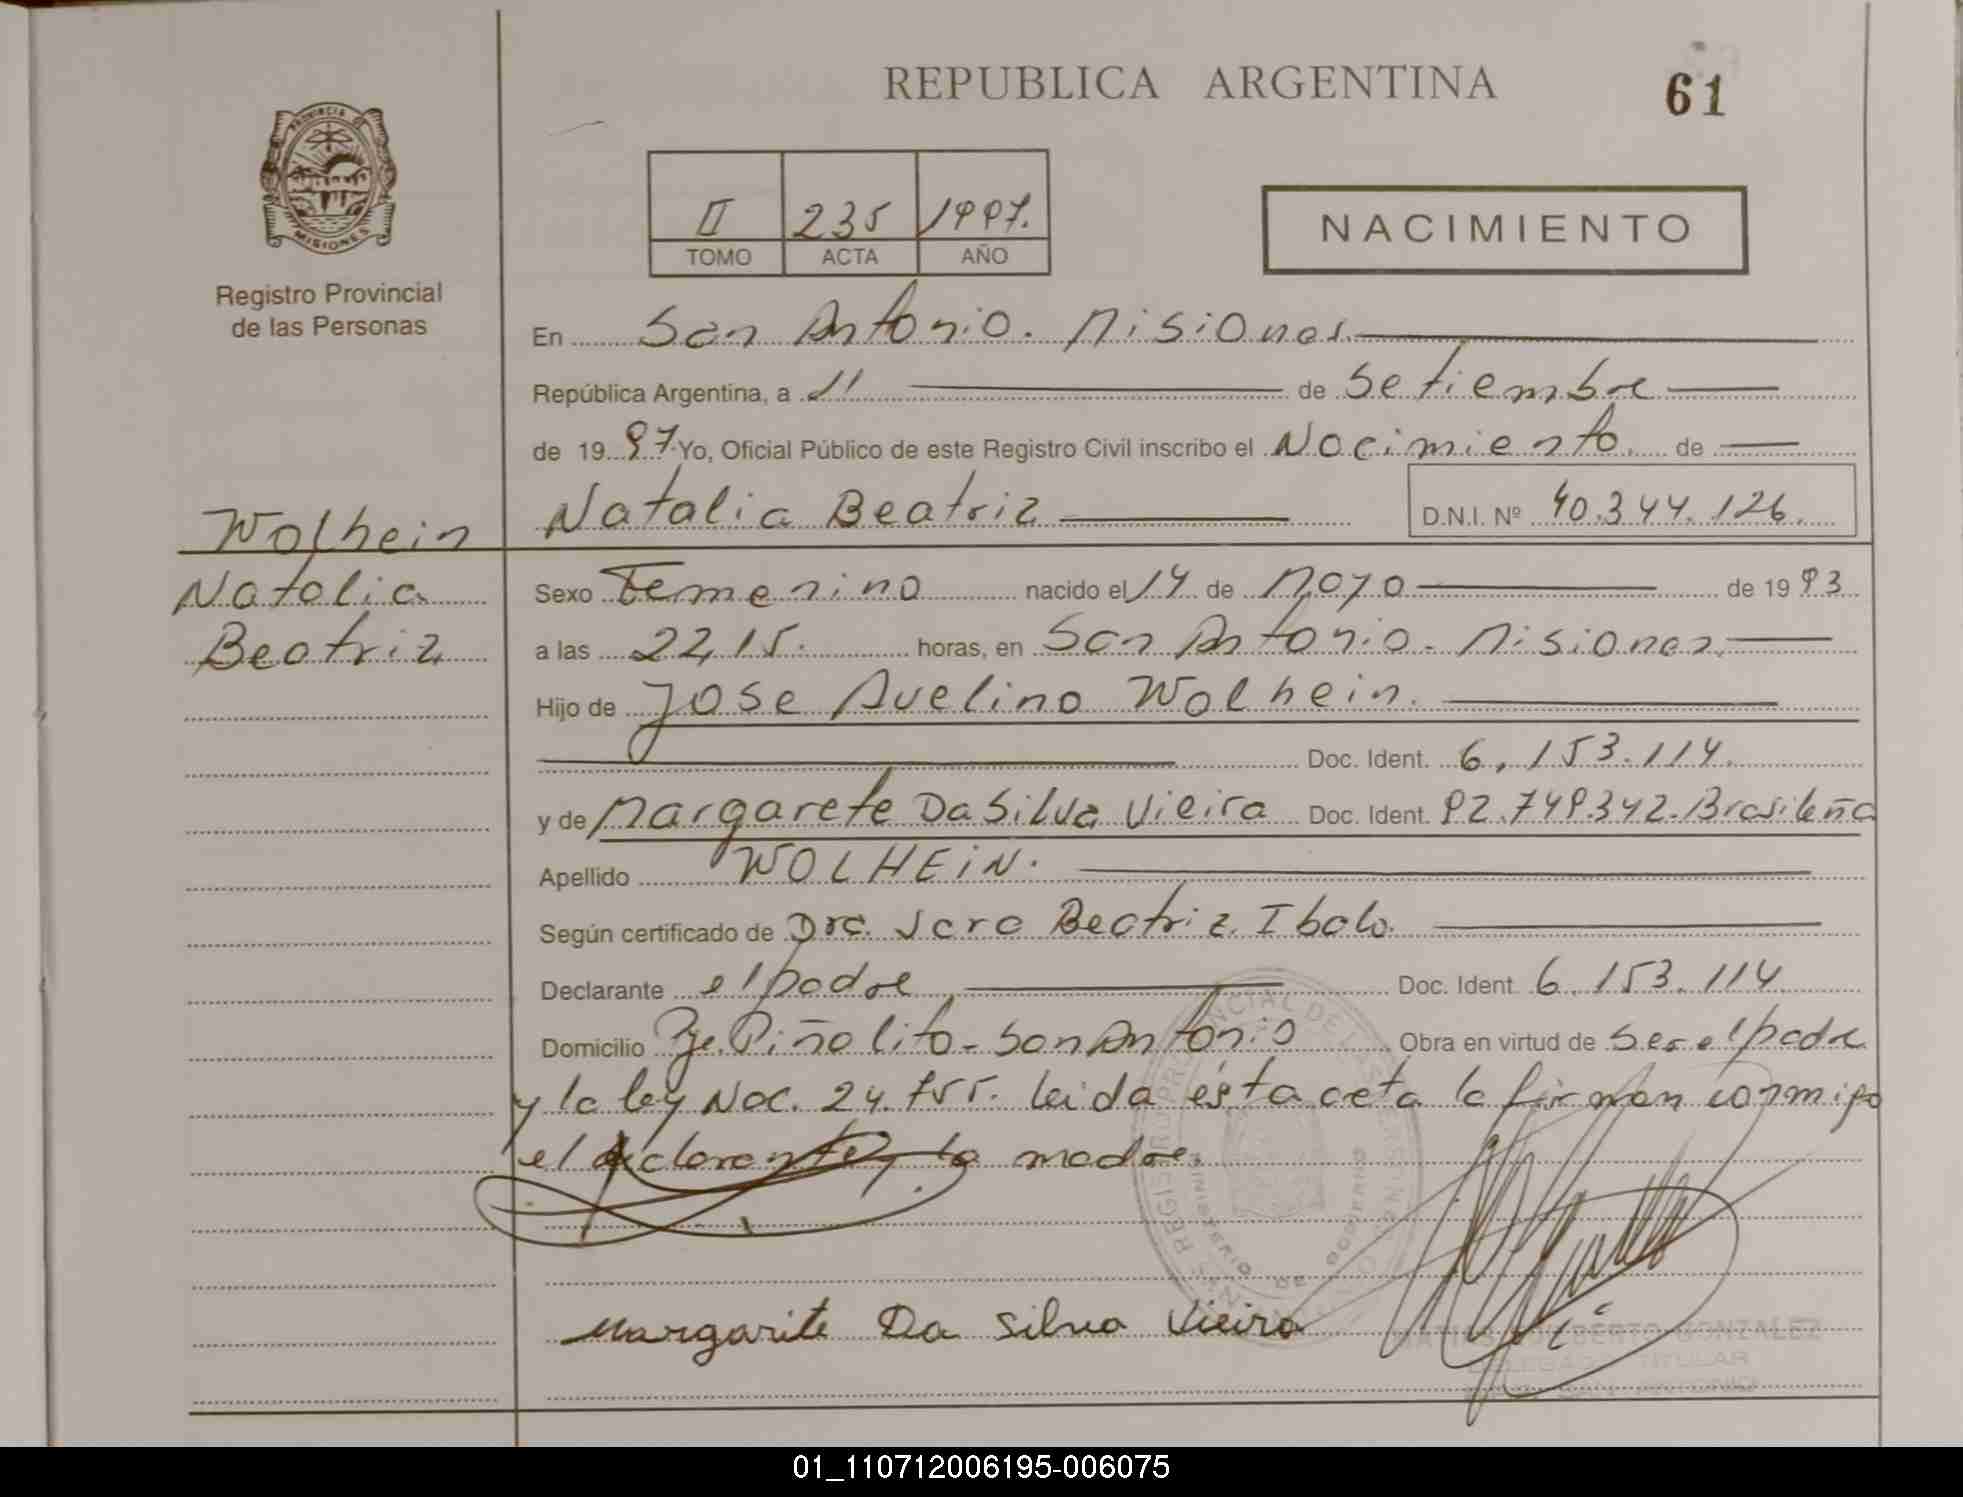 REPUBLICA ARGENTINA
61
PROVINCIA DE
MISIONES
Registro Provincial
de las Personas
II 235 1997.
TOMO ACTA AÑO
NACIMIENTO
En San Antonio. Misiones.
República Argentina, a 11 de Setiembre
de 19 97 Yo, Oficial Público de este Registro Civil inscribo el Nacimiento. de
Natalia Beatriz
D.N.I. Nº 40.344.126.
Wolhein
Natalia
Beatriz
Sexo Femenino nacido el 14 de Mayo de 19 93
a las 22,15. horas, en San Antonio - Misiones.
Hijo de Jose Avelino Wolhein.
Doc. Ident. 6.153.114.
y de Margarete Da Silva Vieira Doc. Ident. 92.749.342. Brasileña
Apellido WOLHEIN.
Según certificado de Dra. Beatriz
Declarante el padre Doc. Ident. 6.153.114
Domicilio Pje. Piñalito - San Antonio Obra en virtud de ser el padre
y la ley Nac. 24.755. Leida ésta acta la firman conmigo
el declarante y la madre.
REGISTRO PROVINCIAL DE LAS PERSONAS
MINISTERIO DE GOBIERNO
Margarite Da Silva Vieira
ROBERTO GONZALEZ
DELEGADO TITULAR
SAN ANTONIO
01_110712006195-006075